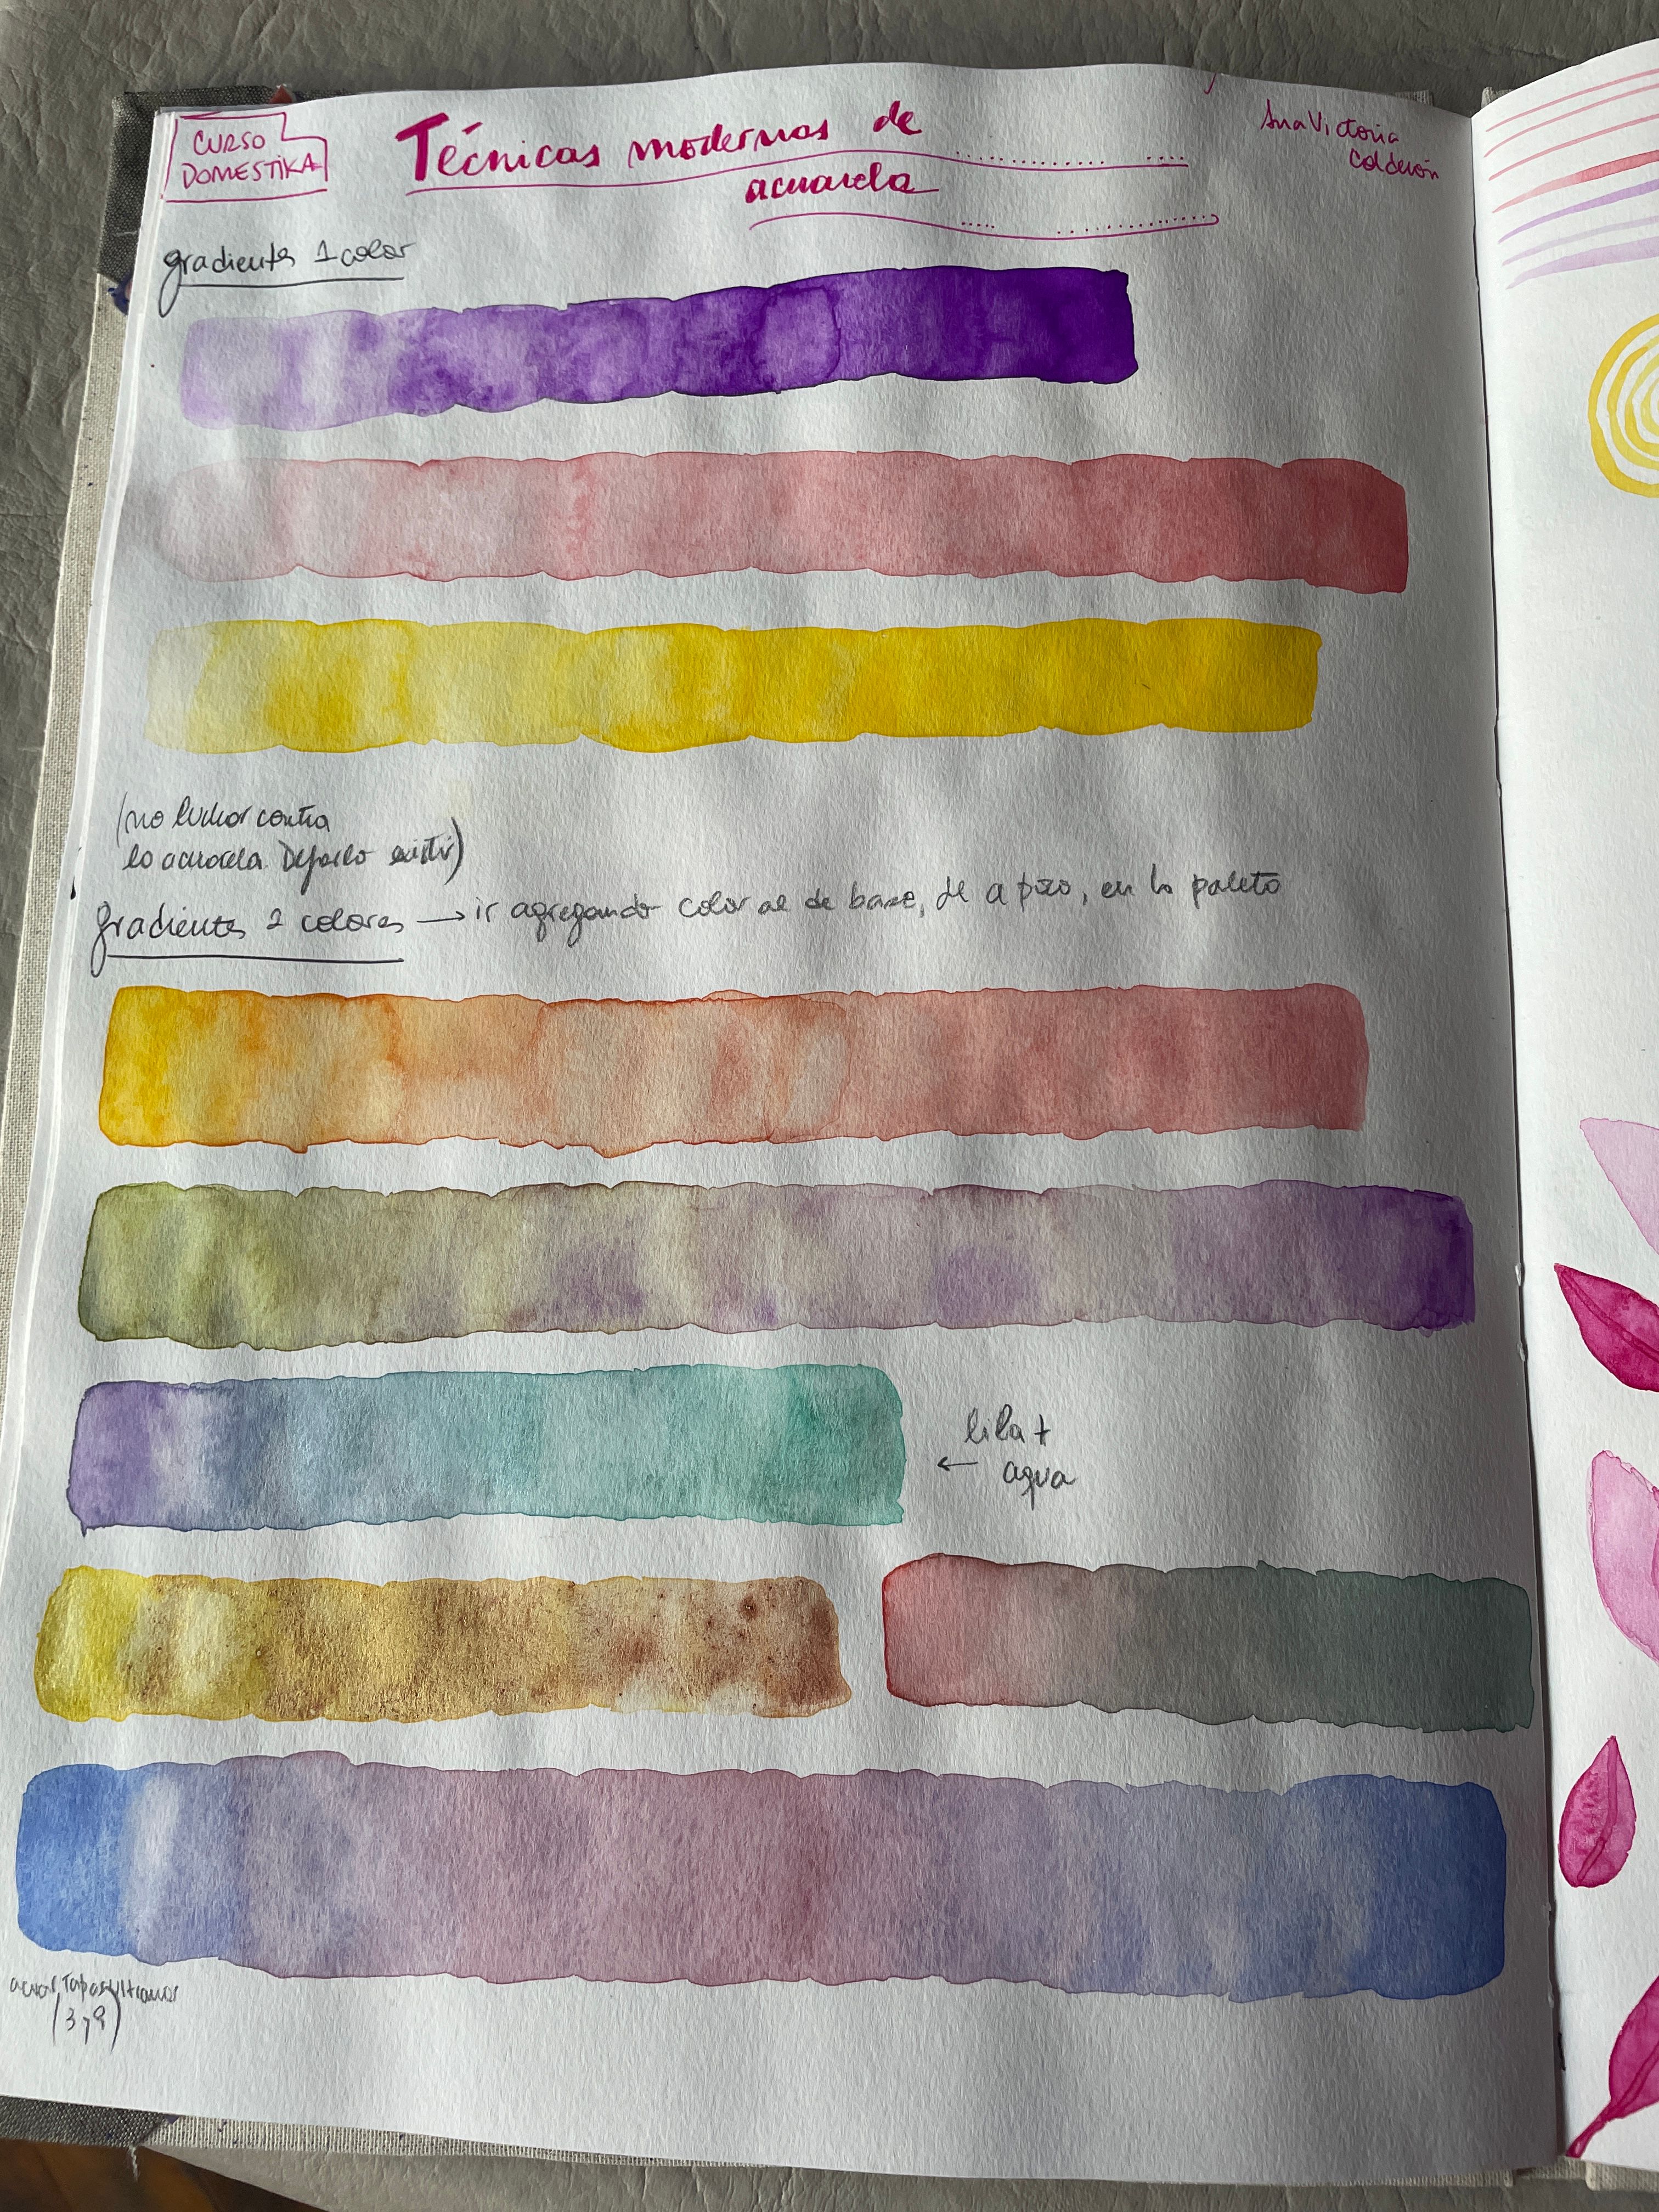 CURSO
DOMESTIKA
Técnicas modernas de
acuarela
Ana Victoria
Calderón
gradientes 1 color
(no luchar contra
la acuarela. Dejarlo existir)
gradientes 2 colores → ir agregando color al de base, de a poco, en la paleta
lila +
← agua
(3 y 9)